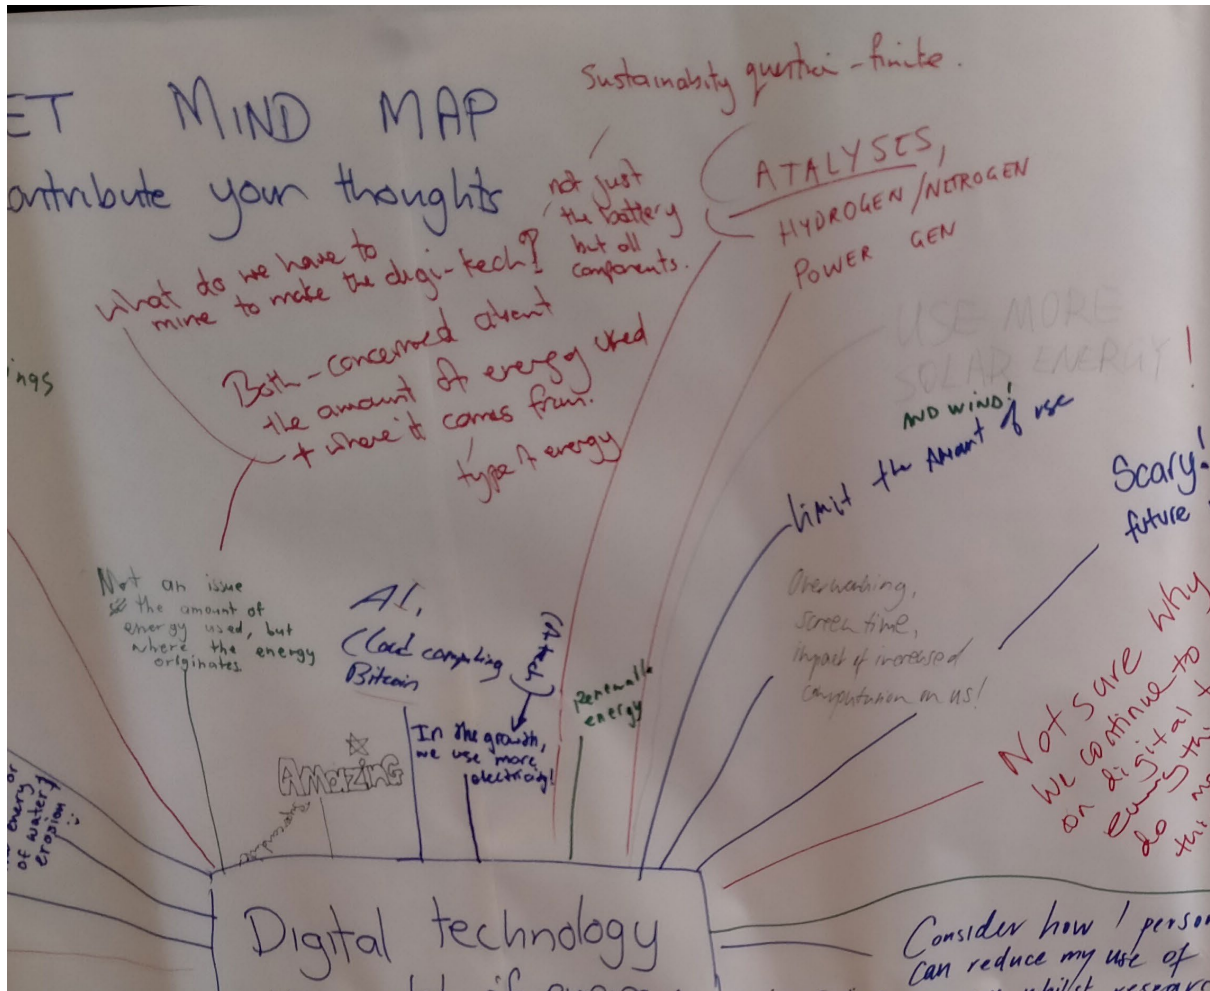 ET MIND MAP
ontribute your thoughts
Sustainability question - finite.
not just
the battery
but all
components.
ATALYSES,
HYDROGEN/NITROGEN
POWER GEN
what do we have to
mine to make the digi-tech?
Both - concerned about
the amount of energy used
+ where it comes from.
type of energy
USE MORE
SOLAR ENERGY!
AND WIND!
limit the amount of use
Scary!
future
ings
Not an issue
the amount of
energy used, but
where the energy
originates
AI,
Cloud computing
Bitcoin
In the growth,
we use more
electricity!
Renewable
energy
AMAZING
screen time,
impact of increased
computation on us!
Not sure why
we continue to
on digital
do
this
energy or
of water
erosion
Digital technology
Consider how I person
can reduce my use of
whilst researc